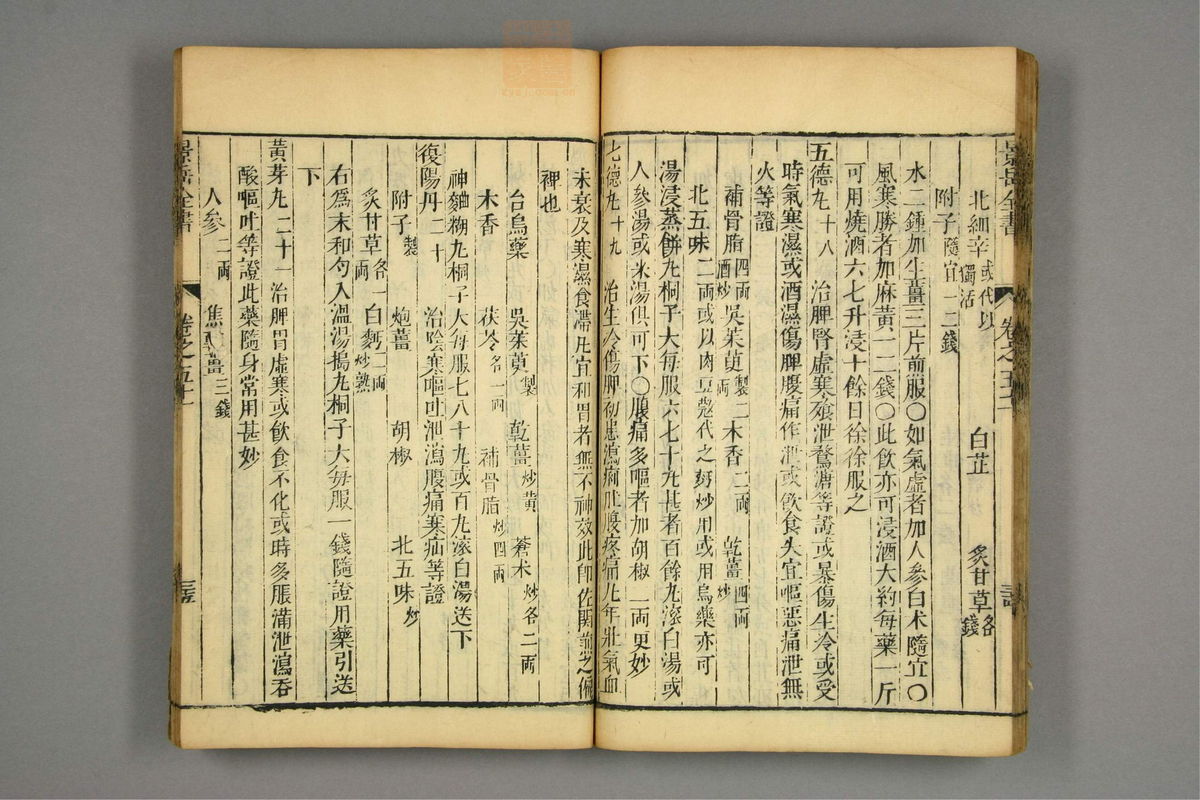 景岳全書
卷之五十一
北細辛 或代以獨活
白芷
炙甘草 各錢
附子 隨宜一二錢
水二鍾加生薑三片前服○如氣虛者加人參白朮隨宜○
風寒勝者加麻黃一二錢○此飲亦可浸酒大約每藥一斤
可用燒酒六七升浸十餘日徐徐服之
五德丸十八 治脾腎虛寒飧泄鶩溏等證或暴傷生冷或受
時氣寒濕或酒濕傷脾腹痛作泄或飲食失宜嘔惡痛泄無
火等證
補骨脂 四兩酒炒 吳茱萸 製二兩 木香 二兩 乾薑 四兩炒
北五味 二兩或以肉豆蔻代之麪炒用或用烏藥亦可
湯浸蒸餅丸桐子大每服六七十丸甚者百餘丸滚白湯或
人參湯或米湯俱可下○腹痛多嘔者加胡椒二兩更妙
七德丸十九 治生冷傷脾初患瀉痢肚腹疼痛凡年壯氣血
未衰及寒濕食滯凡宜和胃者無不神效此即佐關煎之偏
裨也
台烏藥 吳茱萸 製 乾薑 炒黃 蒼朮 炒各二兩
木香 茯苓 各一兩 補骨脂 炒四兩
神麯糊丸桐子大每服七八十丸或百丸滚白湯送下
復陽丹二十 治陰寒嘔吐泄瀉腹痛寒疝等證
附子 製 炮薑 胡椒 北五味 炒
炙甘草 各一兩 白麪 二兩炒熟
右爲末和勻入溫湯搗丸桐子大每服一錢隨證用藥引送
下
黃芽丸二十一 治脾胃虛寒或飲食不化或時多脹滿泄瀉吞
酸嘔吐等證此藥隨身常用甚妙
人參 二兩 焦乾薑 三錢
景岳全書
卷之五十一